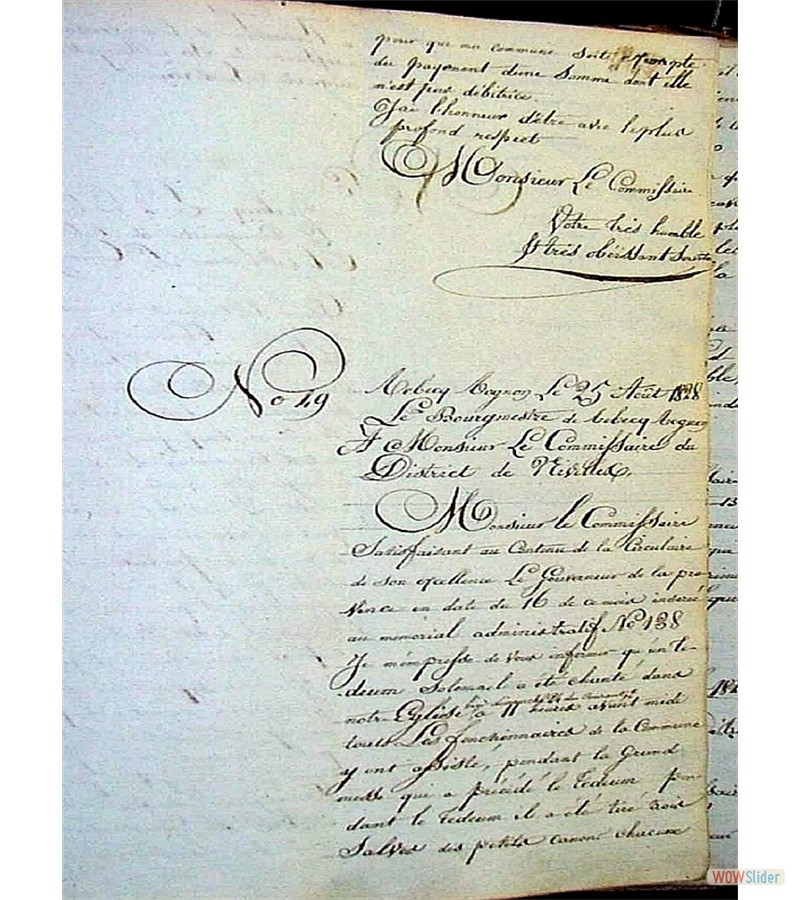 pour que ma commune soit exempte
du payement d'une somme dont elle
n'est pas débitrice.
J'ai l'honneur d'être avec le plus
profond respect
Monsieur Le Commissaire
Votre très humble
& très obéissant Serviteur
No 49
Rebecq Rognon Le 25 Août 1828
Le Bourgmestre de Rebecq Rognon
A Monsieur Le Commissaire du
District de Nivelles,
Monsieur le Commissaire
Satisfaisant au Contenu de la Circulaire
de son excellence Le Gouverneur de la pro-
vince en date du 16 de ce mois inserée
au memorial administratif No 138
Je m'empresse de vous informer qu'un te-
deum solemnel a été chanté dans
notre Eglise hier dimanche 24 du courant
à 11 heures avant midi
touts Les fonctionnaires de la Commune
y ont assisté, pendant la Grand
messe qui a précédé le Tedeum pen-
dant le Tedeum il a été tiré trois
Salves des petits canons chacune
WOWSlider